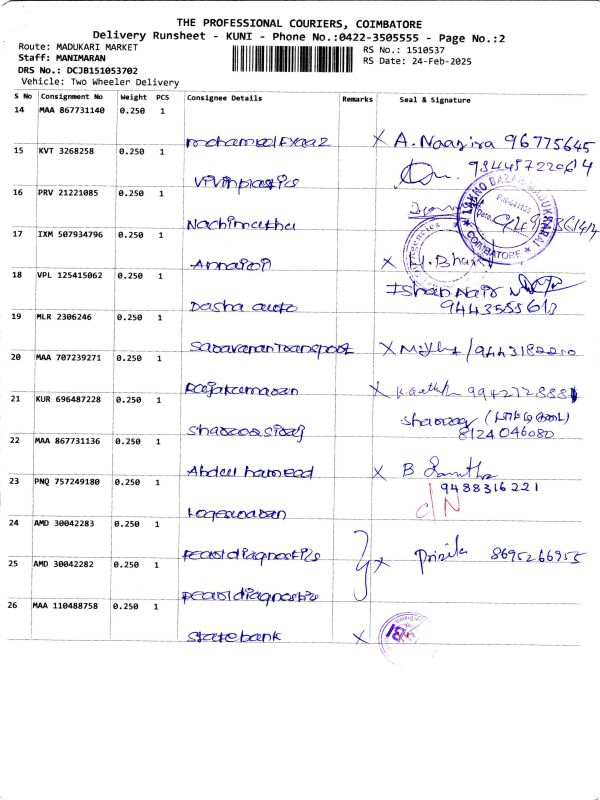 THE PROFESSIONAL COURIERS, COIMBATORE
Delivery Runsheet - KUNI - Phone No.:0422-3505555 - Page No.:2
Route: MADUKARI MARKET
RS No.: 1510537
Staff: MANIMARAN
RS Date: 24-Feb-2025
DRS No.: DCJB151053702
Vehicle: Two Wheeler Delivery
S No Consignment No Weight PCS Consignee Details Remarks Seal & Signature
14 MAA 867731140 0.250 1
mohamed Fyaaz X A. Naazira 96775645
15 KVT 3268258 0.250 1
Vivinplastics
16 PRV 21221085 0.250 1
Nachimuthu
COIMBATORE
17 IXM 507934796 0.250 1
Annaroi X
Agencies
18 VPL 125415062 0.250 1
Ishan Nair
Dasha auto 9443555613
19 MLR 2306246 0.250 1
SaravananTransport X 9443182210
20 MAA 707239271 0.250 1
Rajakumaran X
21 KUR 696487228 0.250 1
8124046080
22 MAA 867731136 0.250 1
Abdul hameed X B
23 PNQ 757249180 0.250 1
9488316221
Logeswaran C/N
24 AMD 30042283 0.250 1
pearl diagnostics X 8695266955
25 AMD 30042282 0.250 1
pearl diagnostic
26 MAA 110488758 0.250 1
state bank X